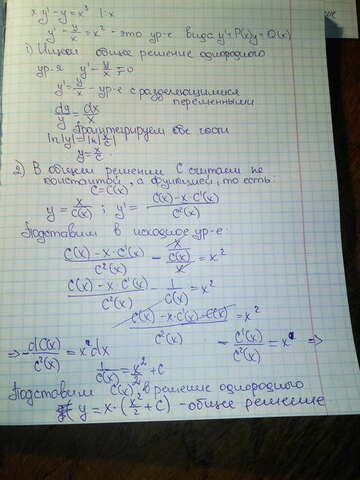 x y' - y = x³ | : x
y' - y/x = x² - это ур-е вида y' + P(x)y = Q(x)
1) Ищем общее решение однородного
ур-я y' - y/x = 0
y' = y/x - ур-е с разделяющимися
переменными
dy/y = dx/x
Проинтегрируем обе части
ln|y| = ln|x/c|
y = x/c
2) В общем решении C считаем не
константой, а функцией, то есть:
C = C(x)
y = x/C(x) ; y' = (C(x) - x·C'(x))/C²(x)
Подставим в исходное ур-е:
(C(x) - x·C'(x))/C²(x) - (x/C(x))/x = x²
(C(x) - x·C'(x))/C²(x) - 1/C(x) = x²
(C(x) - x·C'(x) - C(x))/C²(x) = x²
- C'(x)/C²(x) = x ⇒
⇒ - dC(x)/C²(x) = x dx
1/C(x) = x²/2 + C
Подставим C(x) в решение однородного
y = x·(x²/2 + C) - общее решение